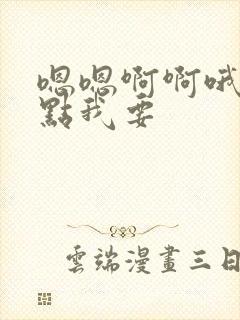 嗯嗯啊啊哦
點我要
雲端漫畫三日